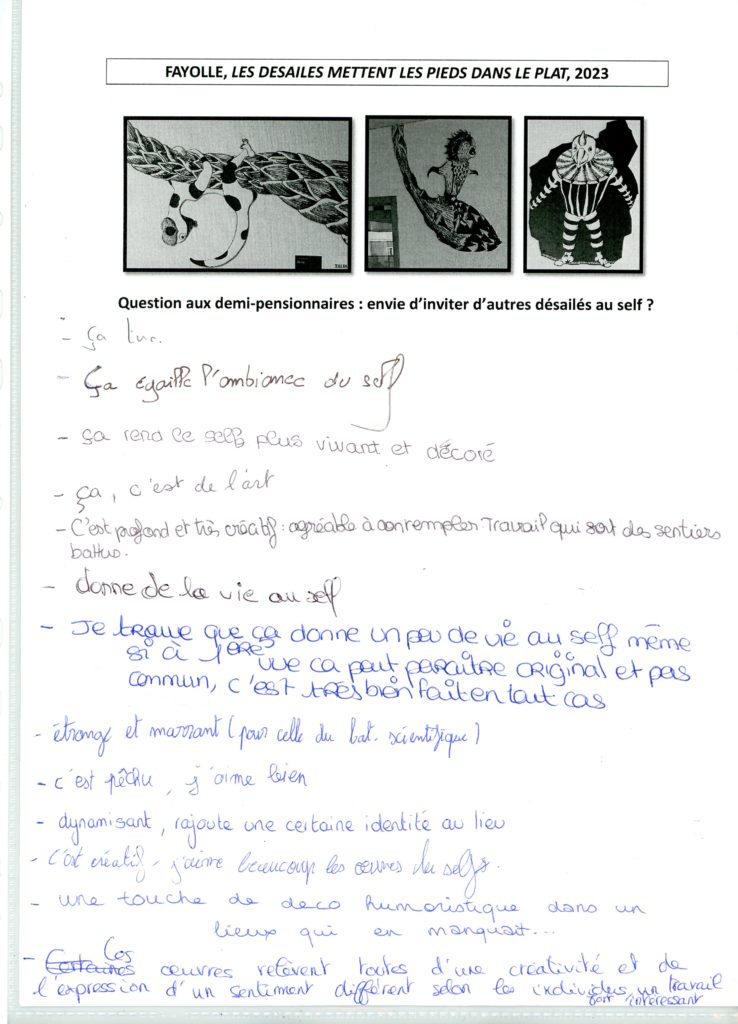 FAYOLLE, LES DESAILES METTENT LES PIEDS DANS LE PLAT, 2023
Question aux demi-pensionnaires : envie d'inviter d'autres désailés au self ?
- ça tue.
- Ça égaille l'ambiance du self
- ça rend le self plus vivant et décoré
- ça, c'est de l'art
- C'est profond et très créatif : agréable à contempler Travail qui sort des sentiers
battus.
- donne de la vie au self
- Je trouve que ça donne un peu de vie au self même
si à 1ère vue ca peut paraître original et pas
commun, c'est très bien fait en tout cas
- étrange et marrant (pour celle du bat. scientifique)
- c'est pêchu, j'aime bien
- dynamisant, rajoute une certaine identité au lieu
- C'est créatif - j'aime beaucoup les œuvres du self.
- une touche de deco humoristique dans un
lieux qui en manquait...
- Certaines Ces œuvres relèvent toutes d'une créativité et de
l'expression d'un sentiment différent selon les individus, un travail
fort intéressant